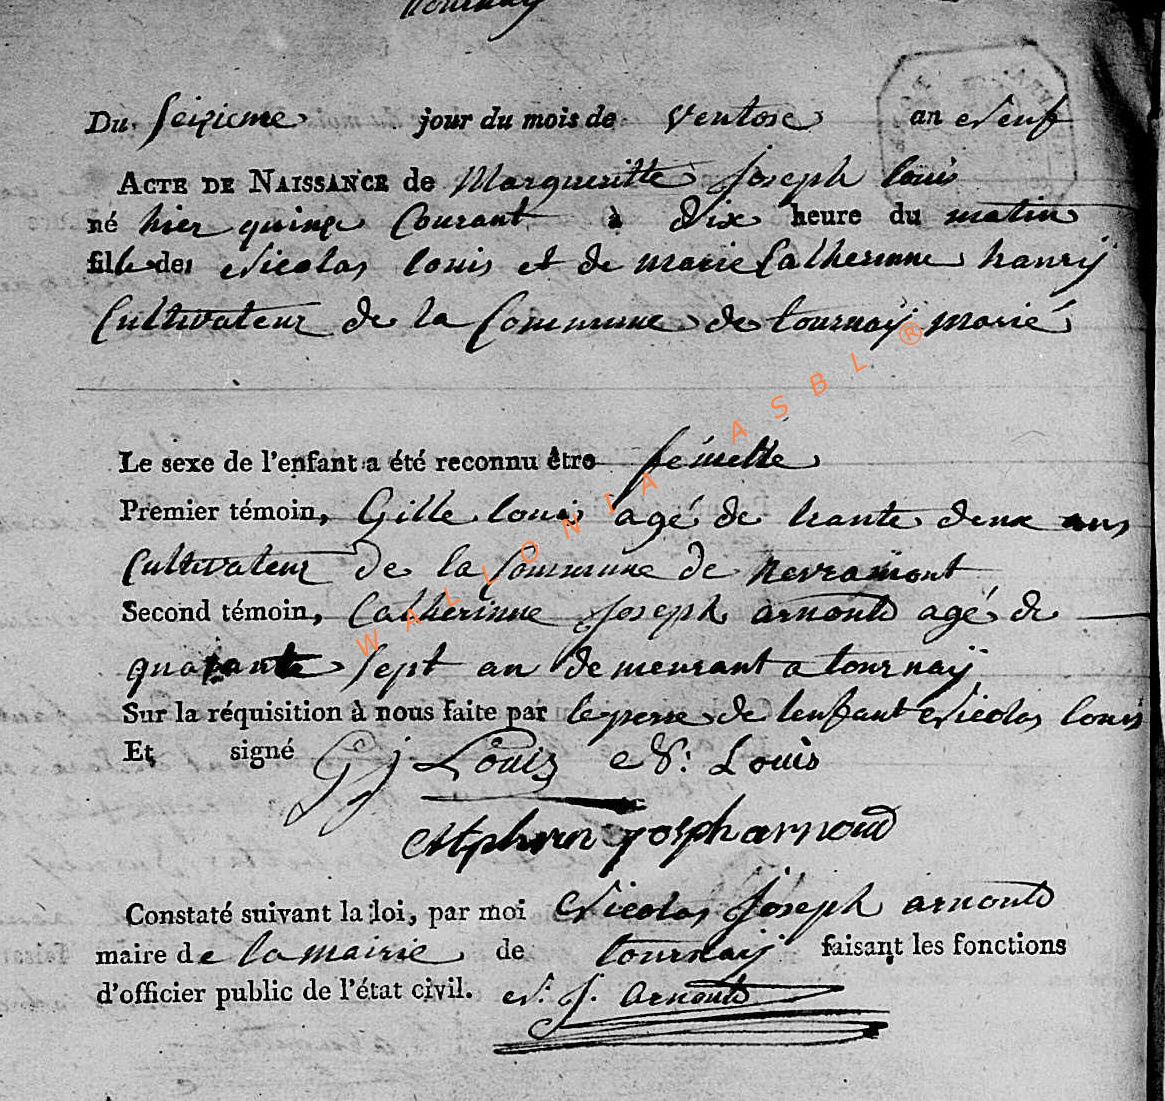 Du seizieme jour du mois de Ventose an Neuf
ACTE DE NAISSANCE de Margueritte Joseph louis
né hier quinze Courant à Dix heure du matin
fille de Nicolas louis et de marie Catherinne hanrÿ
Cultivateur de la Commune de tournaÿ marié
Le sexe de l'enfant a été reconnu être fémelle
Premier témoin, Gille louis agé de trante deux ans
Cultivateur de la Commune de Nevramont
Second témoin, Catherinne Joseph arnould agé de
quarante sept an demeurant a tournaÿ
Sur la réquisition à nous faite par le perre de lenfant Nicolas louis
Et signé G j Louis N: Louis
josph arnoud
Constaté suivant la loi, par moi Nicolas Joseph arnould
maire de la mairie de tournaÿ faisant les fonctions
d'officier public de l'état civil. N. J. Arnould
WALLONIA ASBL ®